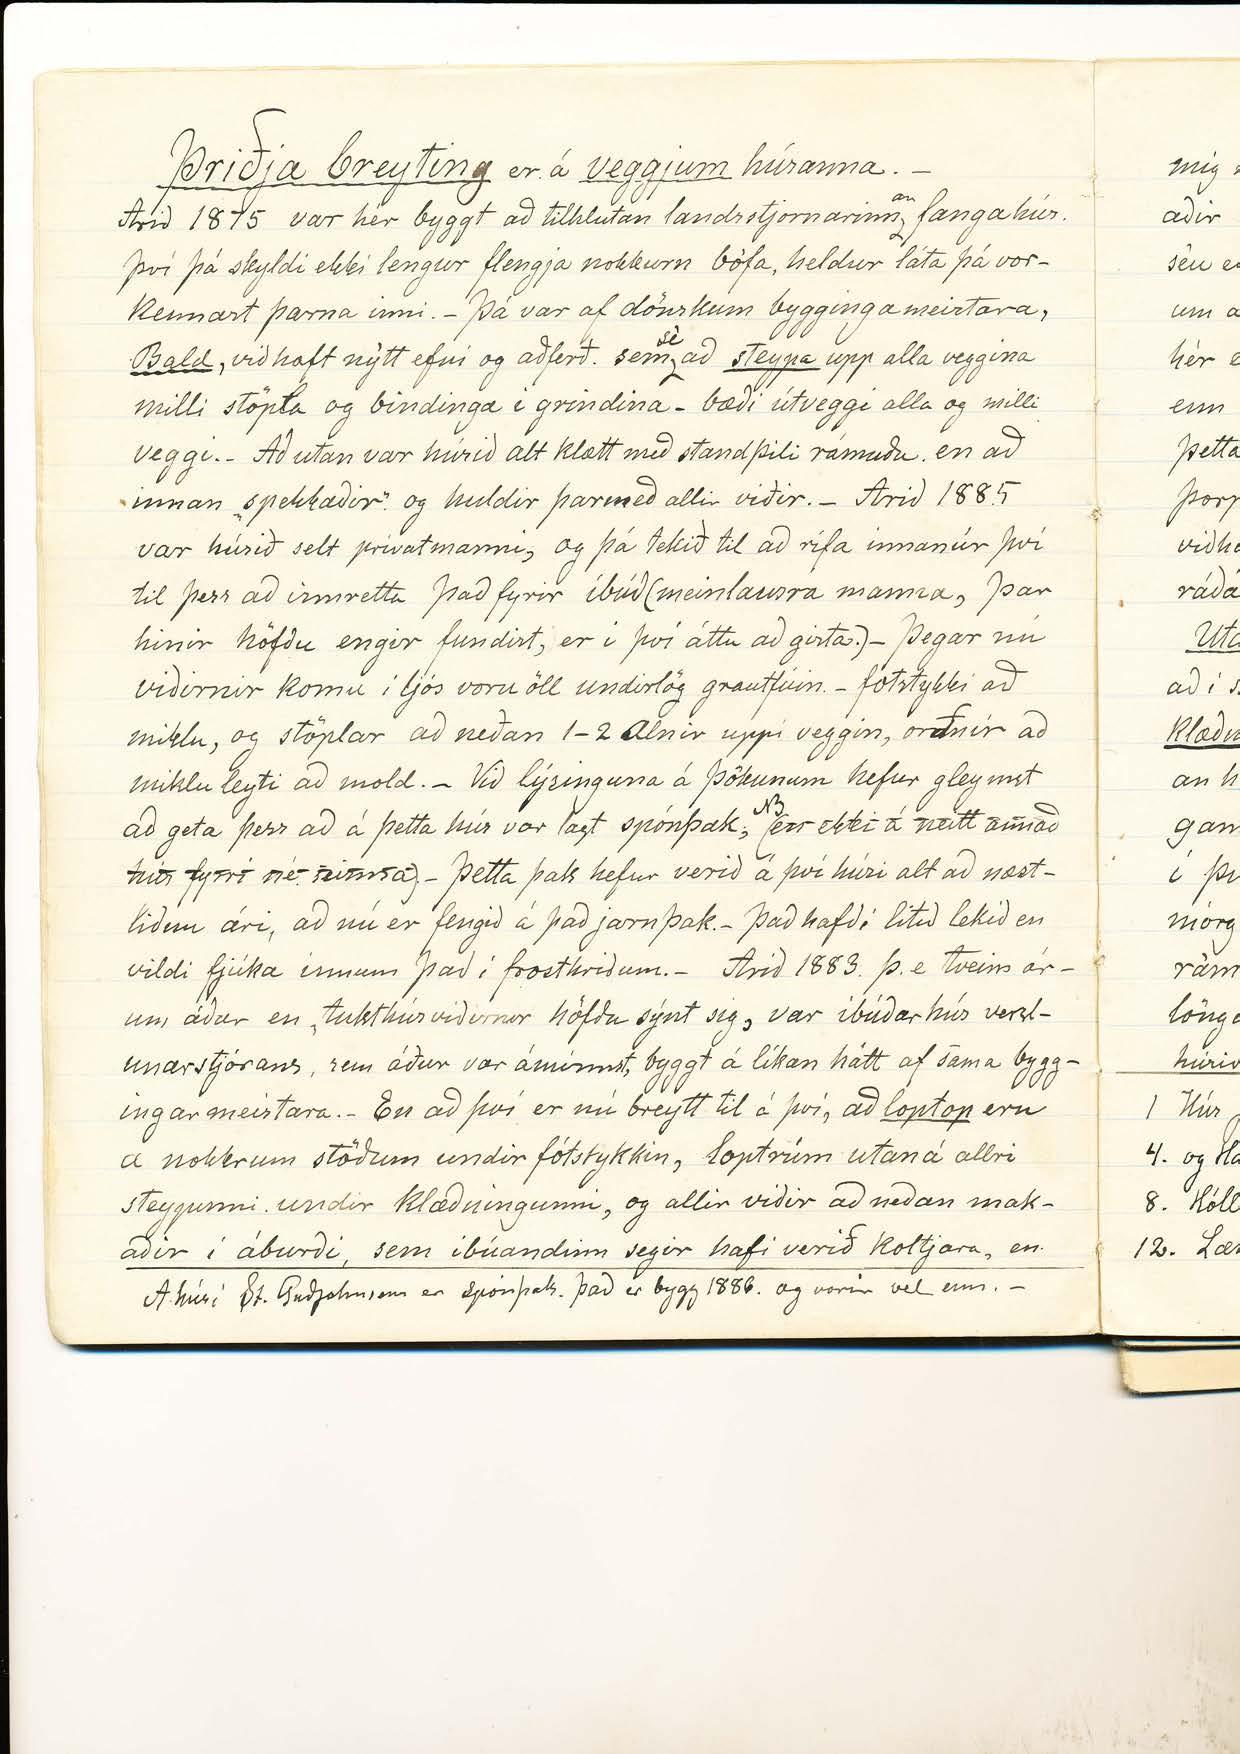 Þriðja breyting er á veggjum húsanna. –
Árið 1875 var hér byggt að tilhlutan landsstjornarinnan fangahús.
því þá skyldi ekki lengur flengja nokkurn bófa, heldur láta þá vor-
kennast þarna inni. – Þá var af dönskum byggingameistara,
Bald, viðhaft nýtt efni og aðferð. sem sé að steypa upp alla veggina
milli stöpla og bindinga i grindina – bæði útveggi alla og milli
veggi. – Að utan var húsið alt klætt með standþili rámuðu. en að
innan „spekkaðir“ og huldir þarmeð allir viðir. – Árið 1885
var húsið selt privatmanni, og þá tekið til að rífa innanúr því
til þess að innretta það fyrir íbúð (meinlausra manna, þar
hinir höfðu engir fundist, er í því áttu að gista.) – Þegar nú
viðirnir komu í ljós voru öll undirlög grautfúin. – fótstykki að
miklu, og stöplar að neðan 1–2 alnir uppi veggin, orðnir að
miklu leyti að mold. – Við lýsinguna á þökunum hefur gleymst
að geta þess að á þetta hús var lagt spónþak; NB (en ekki á neitt annað
hús fyrri né sinna) – Þetta þak hefur verið á því húsi alt að næst-
liðnu ári, að nú er fengið á það jarnþak. – Það hafði litið lekið en
vildi fjúka innum það í frosthriðum. – Árið 1883. þ.e tveim ár-
um áður en „tukthúsviðirnir höfðu sýnt sig, var ibúðarhús verzl-
unarstjórans, sem áður var áminnst, byggt á líkan hátt af sama bygg-
ingarmeistara. – En að því er nú breytt til á því, að loptop eru
a nokkrum stöðum undir fótstykkin, loptrúm utaná allri
steypunni. undir klæðningunni, og allir viðir að neðan mak-
aðir í áburði, sem ibúandinn segir hafi verið koltjara, en
Á húsi St. Guðjohnsens er spónþak. það er bygg 1886. og varir vel enn. –
mig
aðir
séu
um
hér
enn
þetta
ráða
að í
an h
í
mörg
löng
1 Hús
4. og
8. Höll
12.